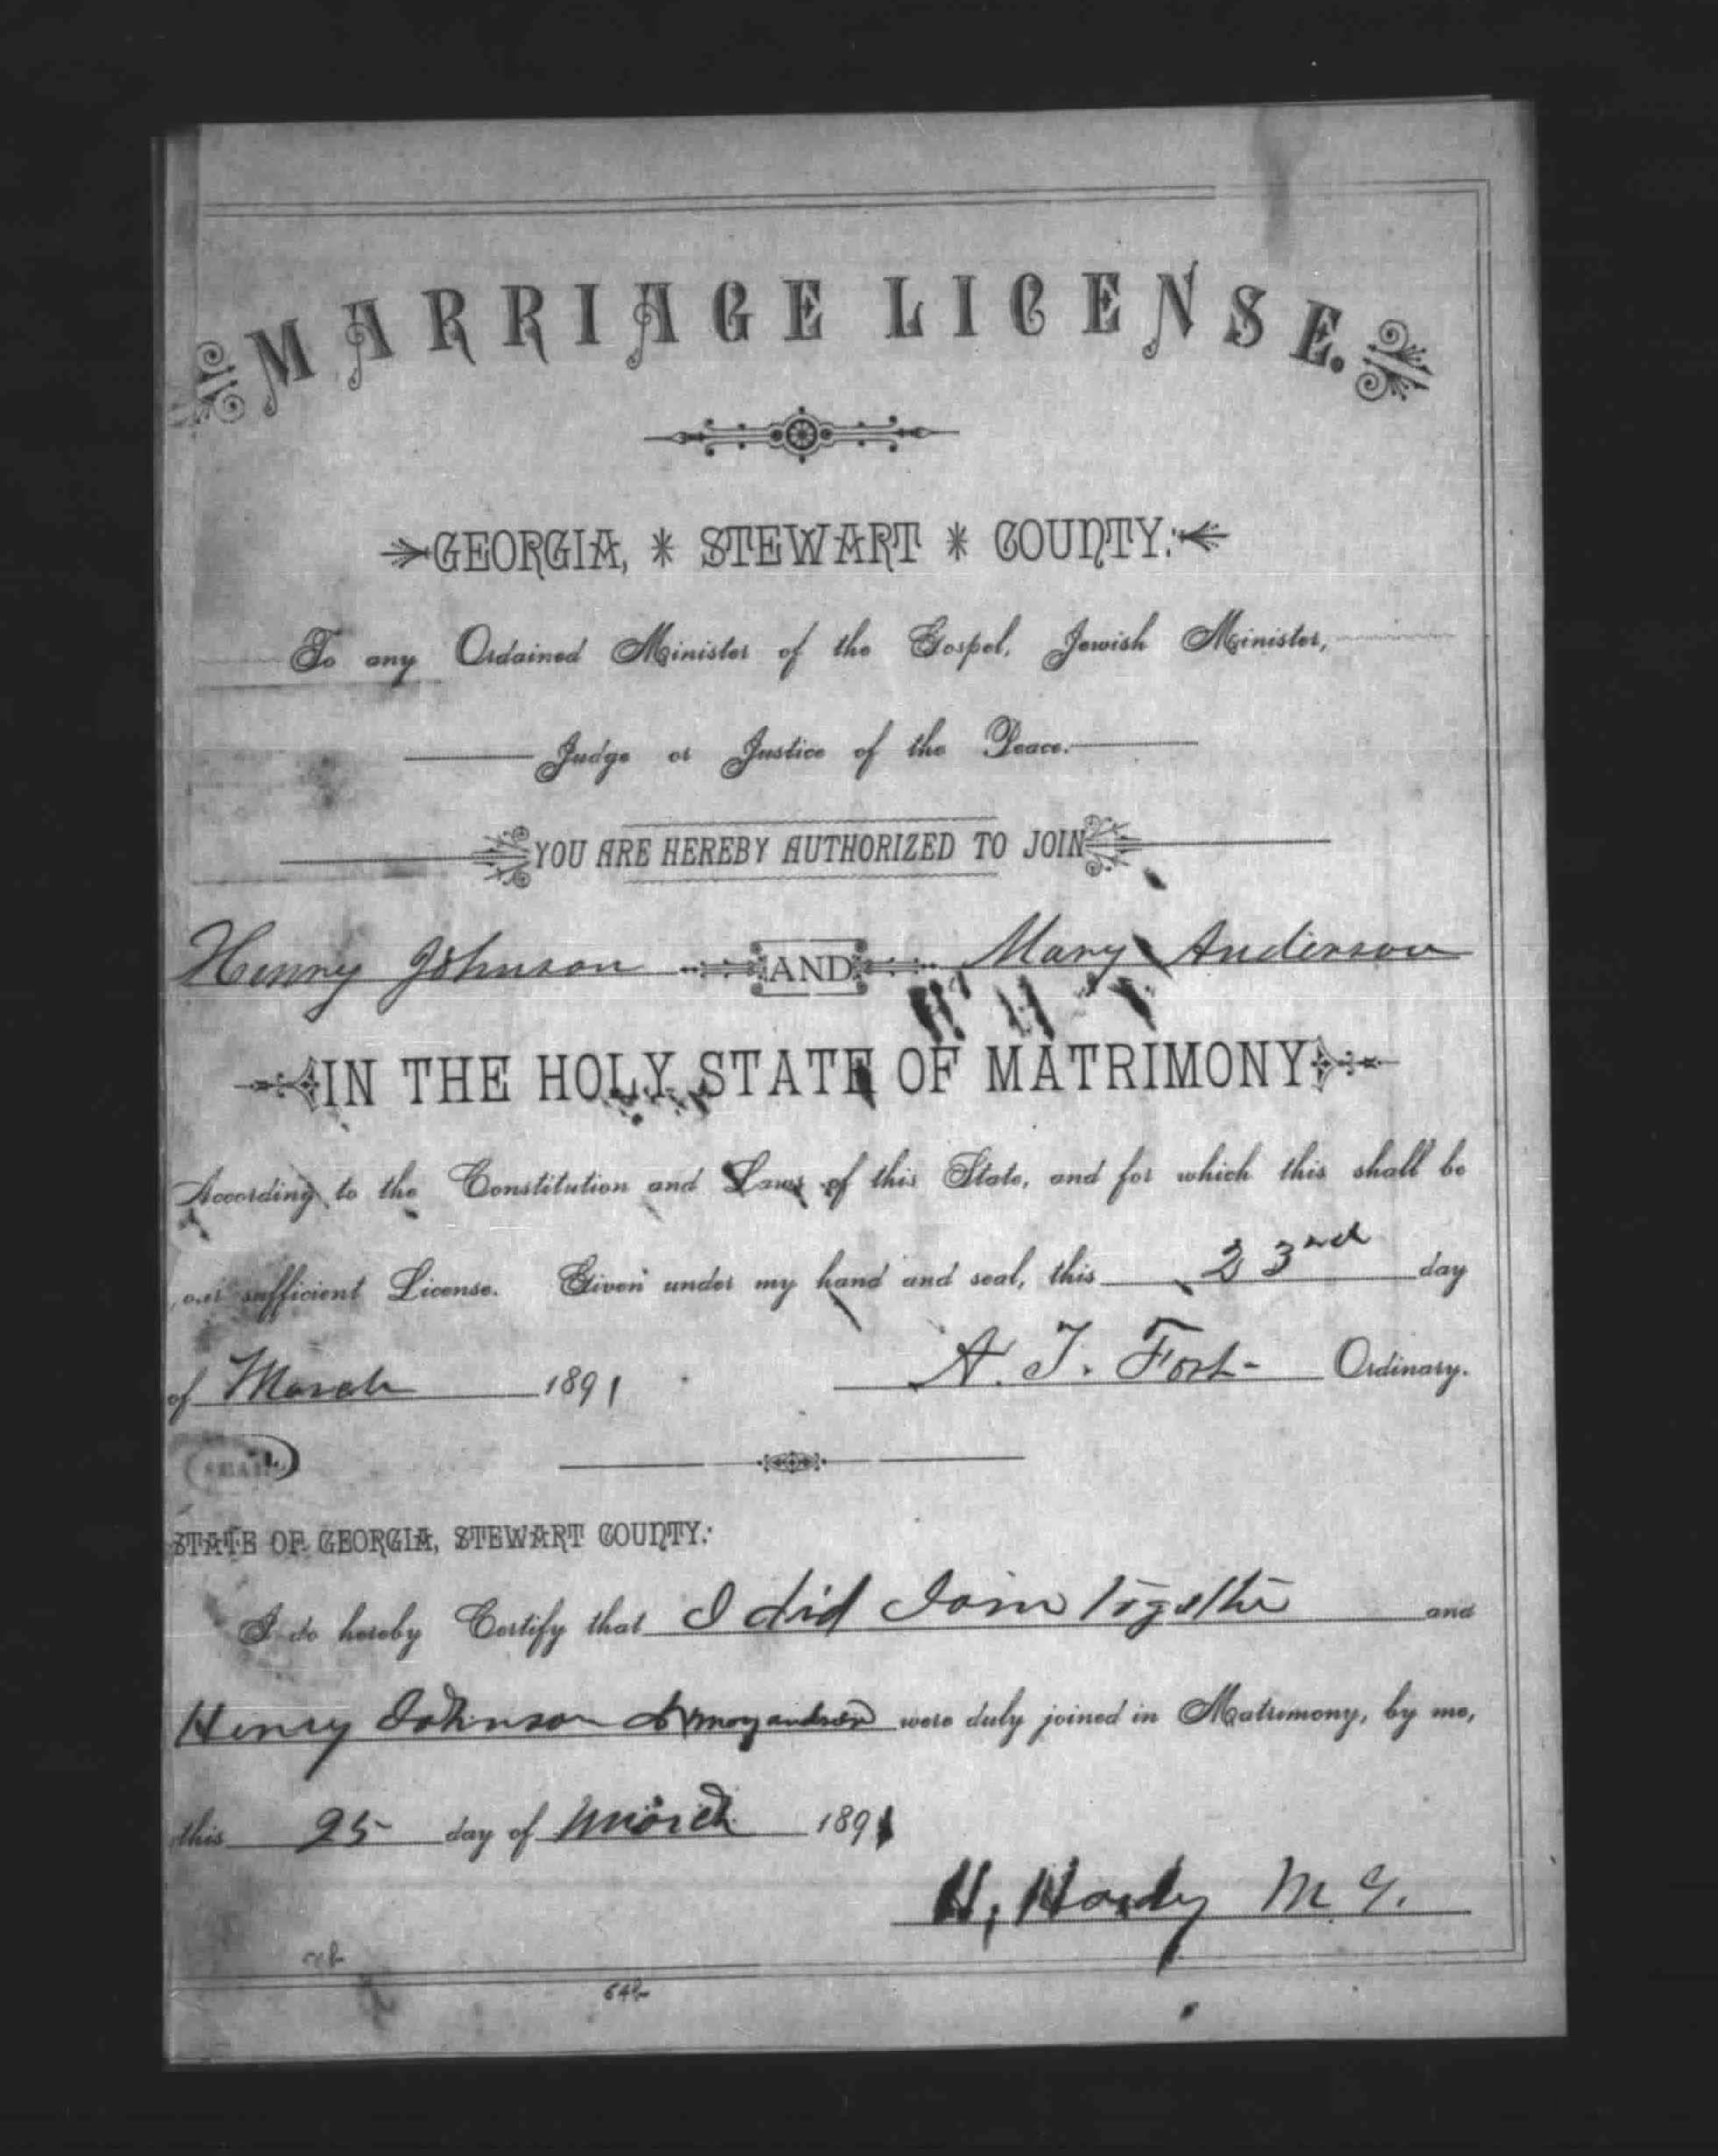 MARRIAGE LICENSE.
GEORGIA, * STEWART * COUNTY:
To any Ordained Minister of the Gospel, Jewish Minister,
Judge or Justice of the Peace.
YOU ARE HEREBY AUTHORIZED TO JOIN
Henry Johnson AND Mary Anderson
IN THE HOLY STATE OF MATRIMONY
According to the Constitution and Laws of this State, and for which this shall be
sufficient License. Given under my hand and seal, this 23nd day
of March 1891 A. T. Fort Ordinary.
SEAL
STATE OF GEORGIA, STEWART COUNTY:
I do hereby Certify that I did Join together and
Henry Johnson & were duly joined in Matrimony, by me,
this 25 day of March 1891
H, Hardy M. G.